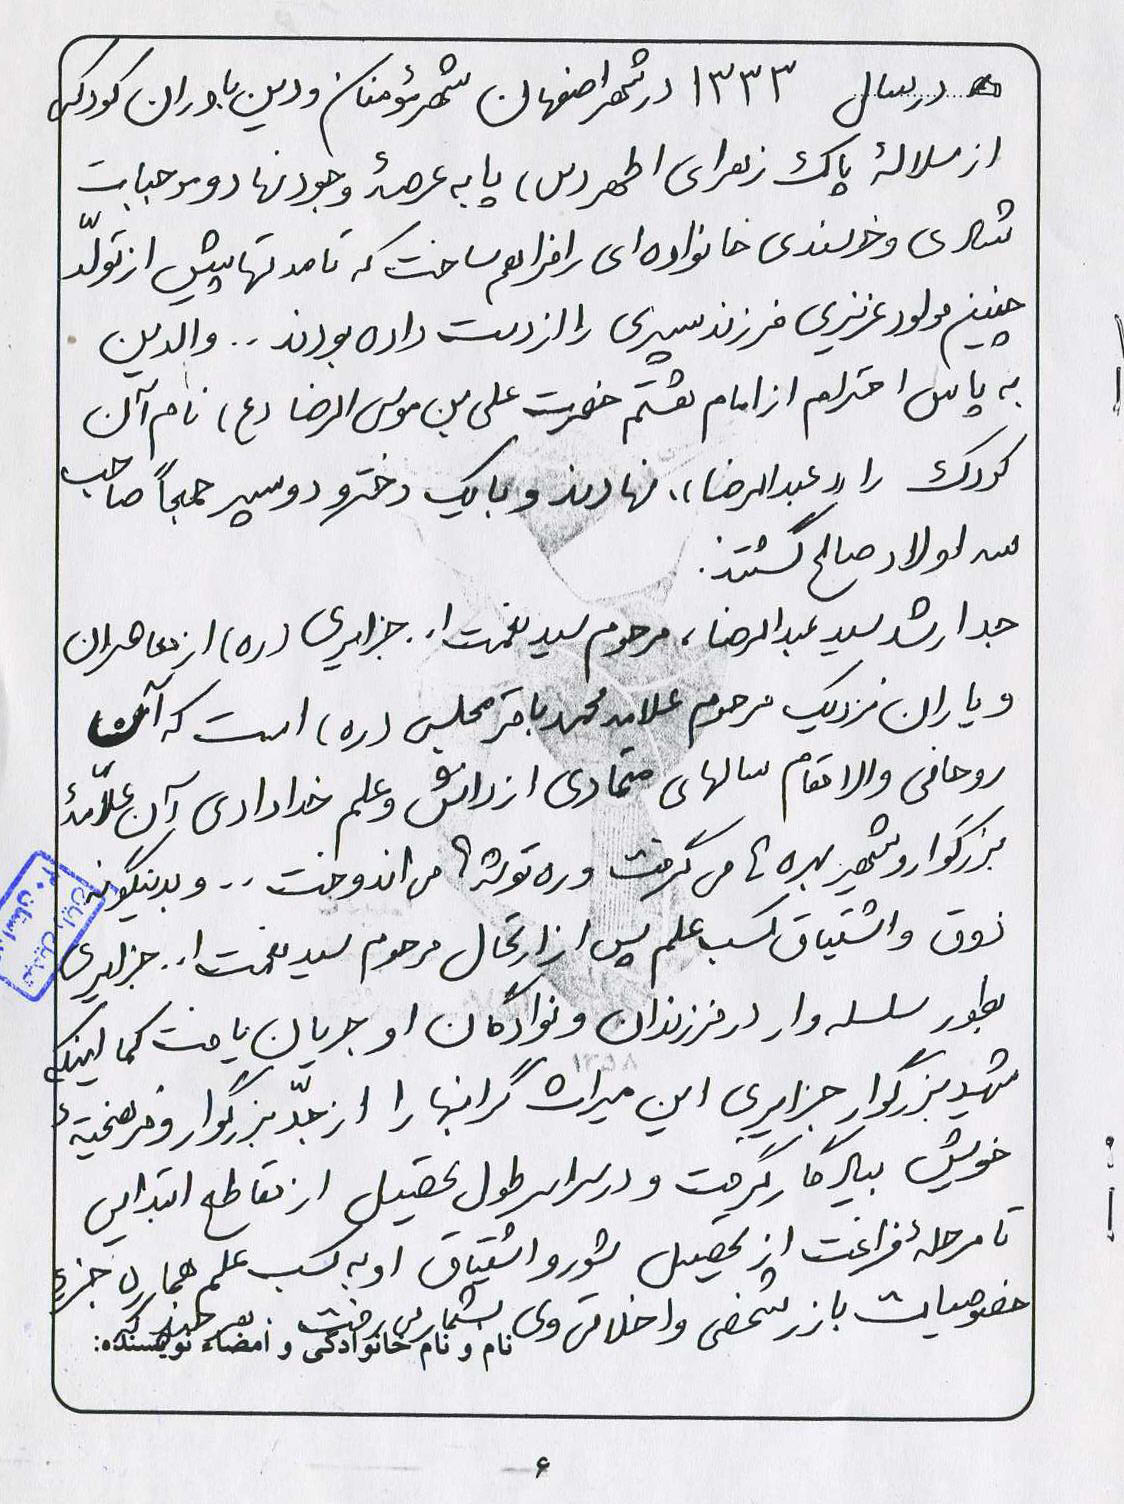 در سال ۱۳۳۳ در شهر اصفهان شهر مؤمنان و دین باوران کودکی
از سلالهٔ پاک زهرای اطهر (س) پا به عرصهٔ وجود نهاد و موجبات
شادی و خرسندی خانواده ای را فراهم ساخت که تا مدتها پیش از تولّد
چنین مولود عزیزی فرزند پسری را از دست داده بودند .. والدین
به پاس احترام از امام هشتم حضرت علی بن موسی الرضا (ع) نام آن
کودک را «عبدالرضا» نهادند و با یک دختر و دو پسر جمعاً صاحب
سه اولاد صالح گشتند.
جد ارشد سید عبدالرضا، مرحوم سید نعمت ا.. جزایری (ره) از معاصران
و یاران نزدیک مرحوم علامه محمد باقر مجلسی (ره) است که آن
روحانی والامقام سالهای متمادی از دانش و علم خدادادی آن علّامهٔ
بزرگوار و شهیر بهره ها می گرفت و ره توشه ها می اندوخت .. و بدینگونه
ذوق و اشتیاق کسب علم پس از ارتحال مرحوم سید نعمت ا.. جزایری
بطور سلسله وار در فرزندان و نوادگان او جریان یافت کما اینکه
شهید بزرگوار جزایری این میراث گرانبها را از جدّ بزرگوار و فرهیختهٔ
خویش بیادگار گرفت و در سراسر طول تحصیل از مقاطع ابتدایی
تا مرحلهٔ فراغت از تحصیل شور و اشتیاق او به کسب علم همواره جزءِ
خصوصیات بارز شخصی و اخلاقی وی بشمار می رفت
نام و نام خانوادگی و امضاء نویسنده:
۶